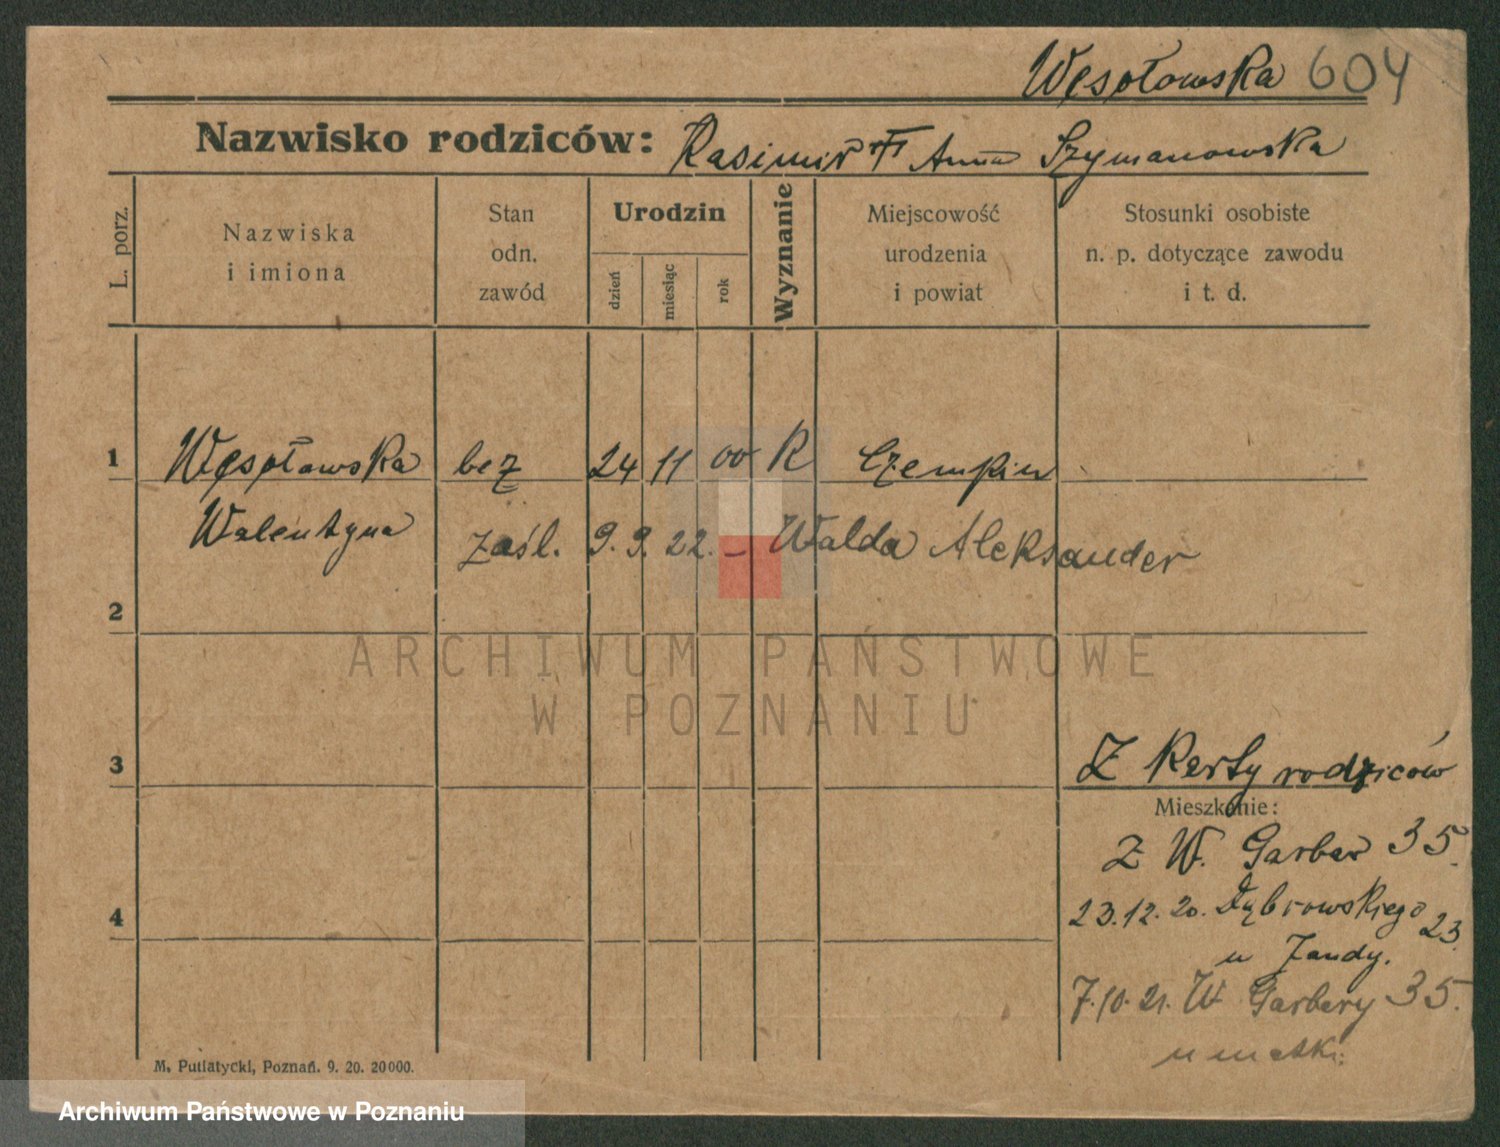 Węsołowska 604
Nazwisko rodziców: Kasimir Anna Szymanowska
L. porz.
Nazwiska
i imiona
Stan
odn.
zawód
Urodzin
dzień
miesiąc
rok
Wyznanie
Miejscowość
urodzenia
i powiat
Stosunki osobiste
n. p. dotyczące zawodu
i t. d.
1 Węsołowska bez 24 11 00 R Czempin
Walentyna zaśl. 9. 9. 22. – Walda Aleksander
2
ARCHIWUM PAŃSTWOWE
W POZNANIU
3
Z Karty rodziców
Mieszkanie:
Z W. Garbar 35.
4
23.12.20. Dąbrowskiego 23.
u Zandy.
7.10.21. W Garbary 35.
u matki.
M. Putiatycki, Poznań. 9. 20. 20000.
Archiwum Państwowe w Poznaniu